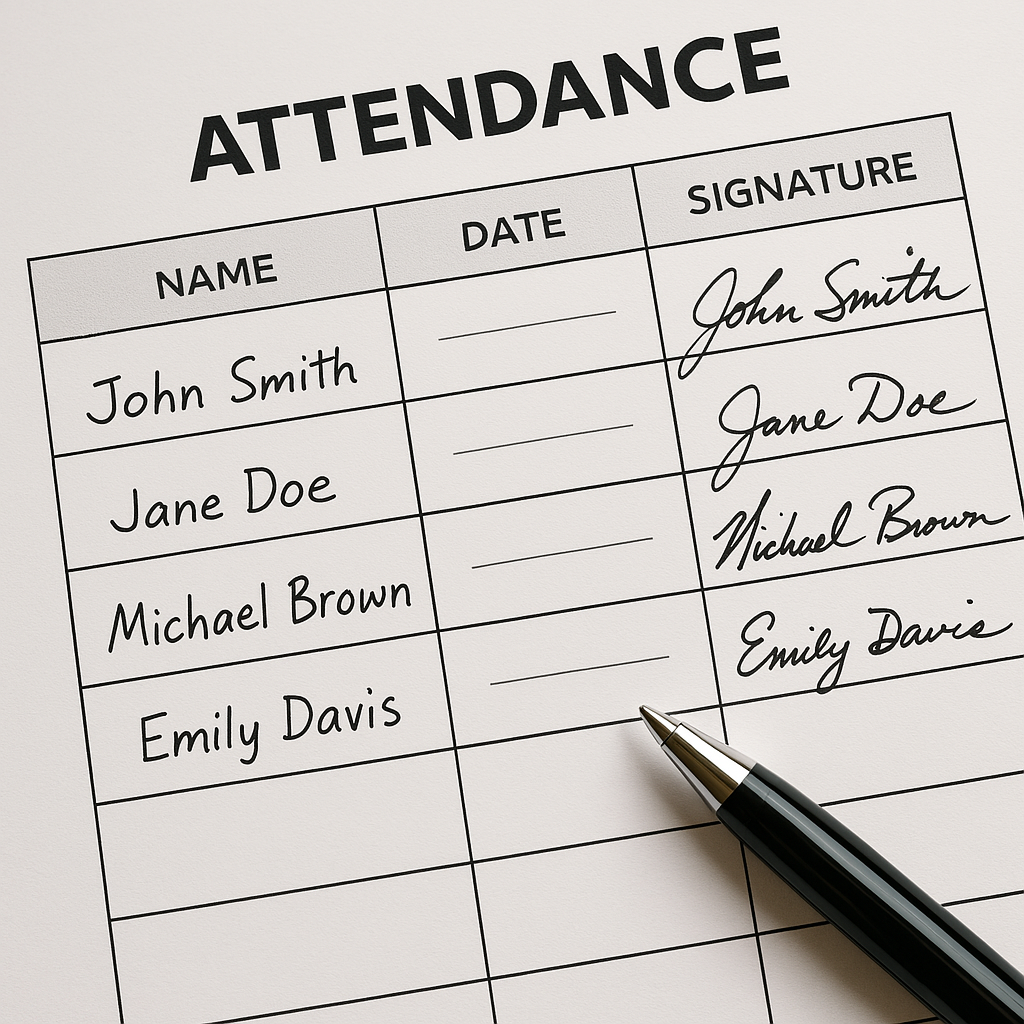 ATTENDANCE
NAME DATE SIGNATURE
John Smith John Smith
Jane Doe Jane Doe
Michael Brown Michael Brown
Emily Davis Emily Davis